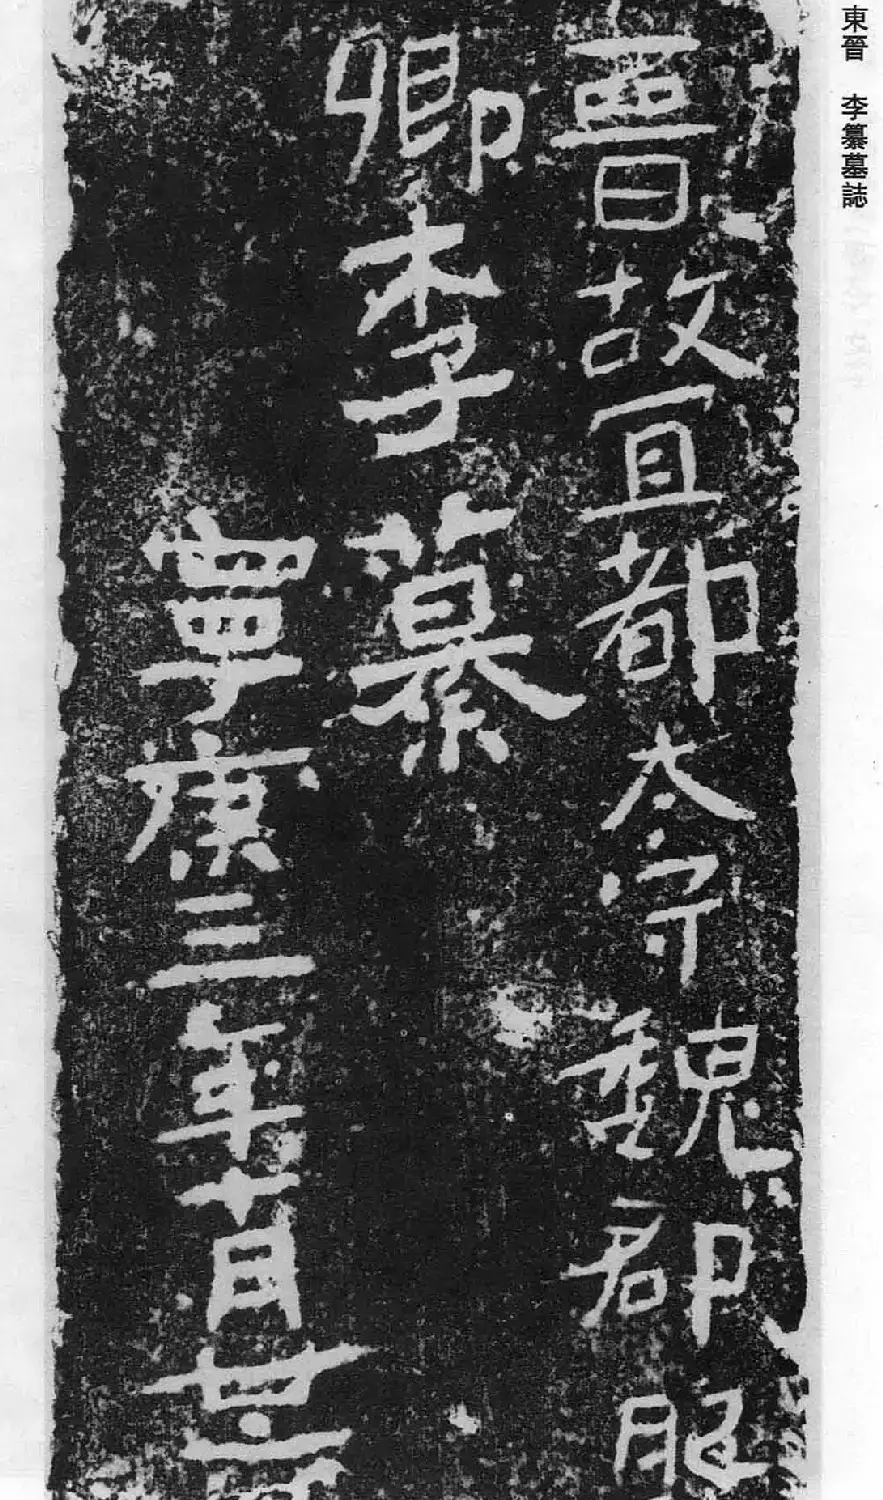 東晉 李纂墓誌
晉故宜都太守魏郡肥
鄉李纂
寧康三年十月廿六